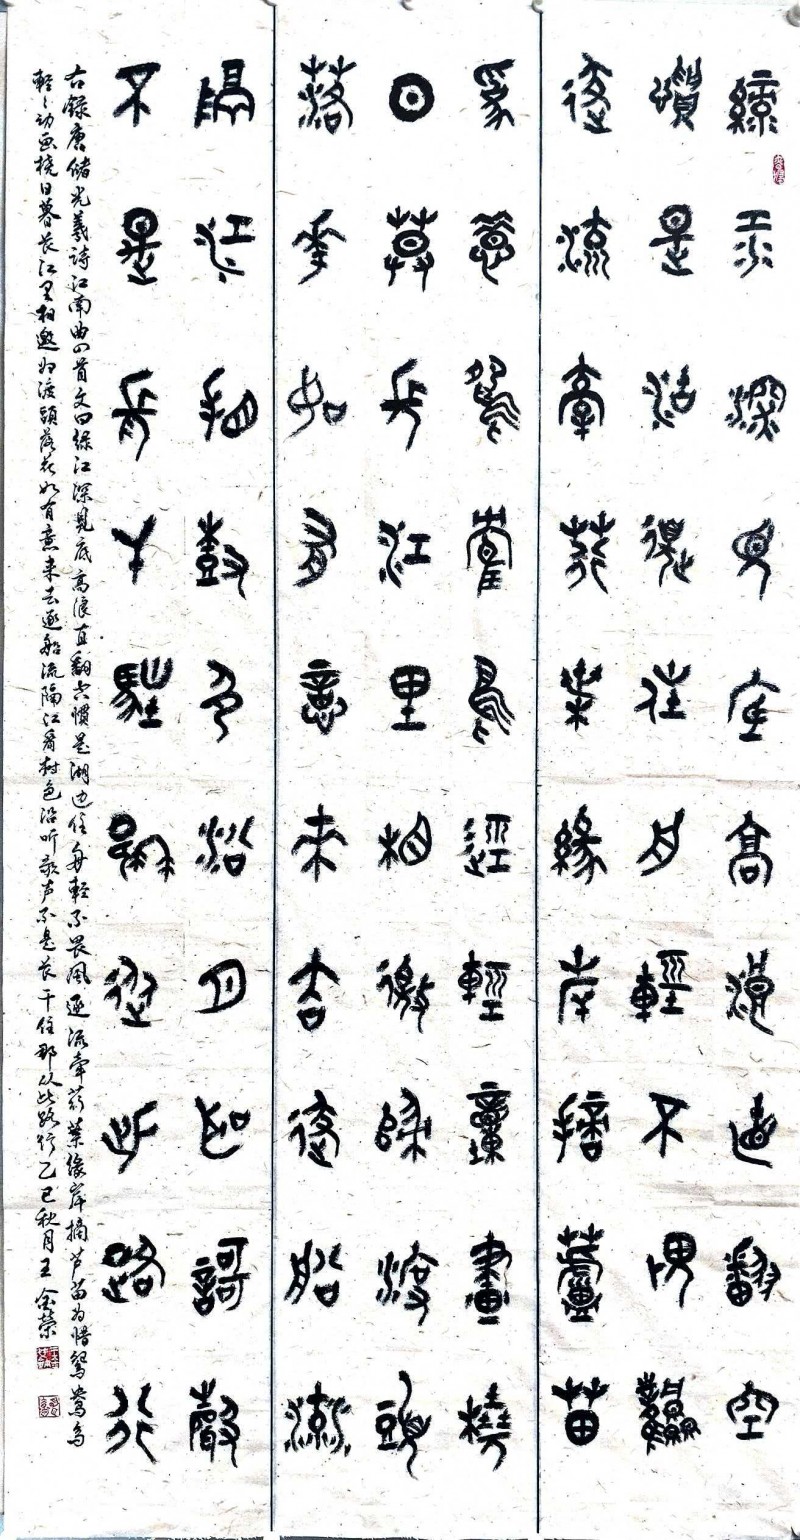 綠江深見底高浪直翻空
慣是湖邊住舟輕不畏風
逐流牽荇葉緣岸摘蘆苗
為惜鴛鴦鳥輕輕動畫橈
日暮長江里相邀歸渡頭
落花如有意來去逐船流
隔江看樹色沿月聽歌聲
不是長干住那從此路行
右錄唐储光羲詩江南曲四首文曰綠江深見底高浪直翻空慣是湖边住舟輕不畏風逐流牵荇葉缘岸摘芦苗为惜鴛鴦鸟
輕〻动画桡日暮长江里相邀归渡頭落花如有意来去逐船流隔江看树色沿听歌声不是长干住那从此路行乙巳秋月王金荣